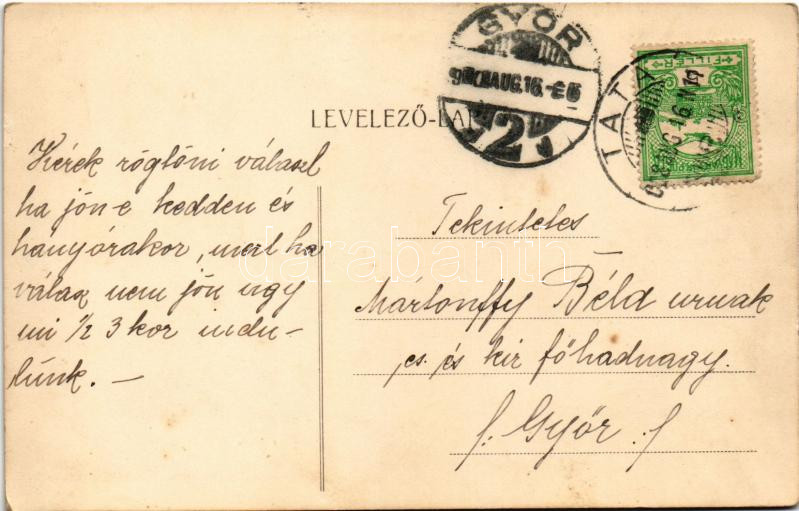 GYŐR
908 AUG. 16.
2
TATA
FILLÉR
LEVELEZŐ-LAP
Kérek rögtöni választ
ha jön-e kedden és
hány órakor, mert ha
válasz nem jön úgy
mi ½ 3 kor indu-
lunk. —
Tekintetes
Mártonffy Béla urnak
cs. és kir főhadnagy.
Győr
darabanth